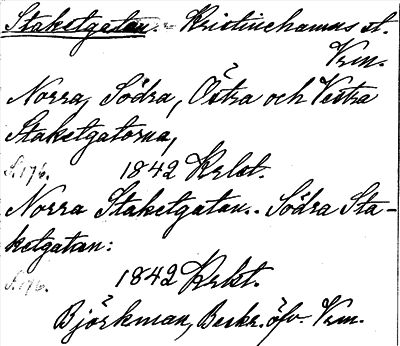 Staketgatan. - Kristinehamns st.
Vrm.
Norra, Södra, Östra och Vestra
Staketgatorna,
S.176. 1842 Krlst.
Norra Staketgatan. - Södra Sta-
ketgatan:
S.176. 1842 Krlst.
Björkman, Beskr. öfv. Vrm.